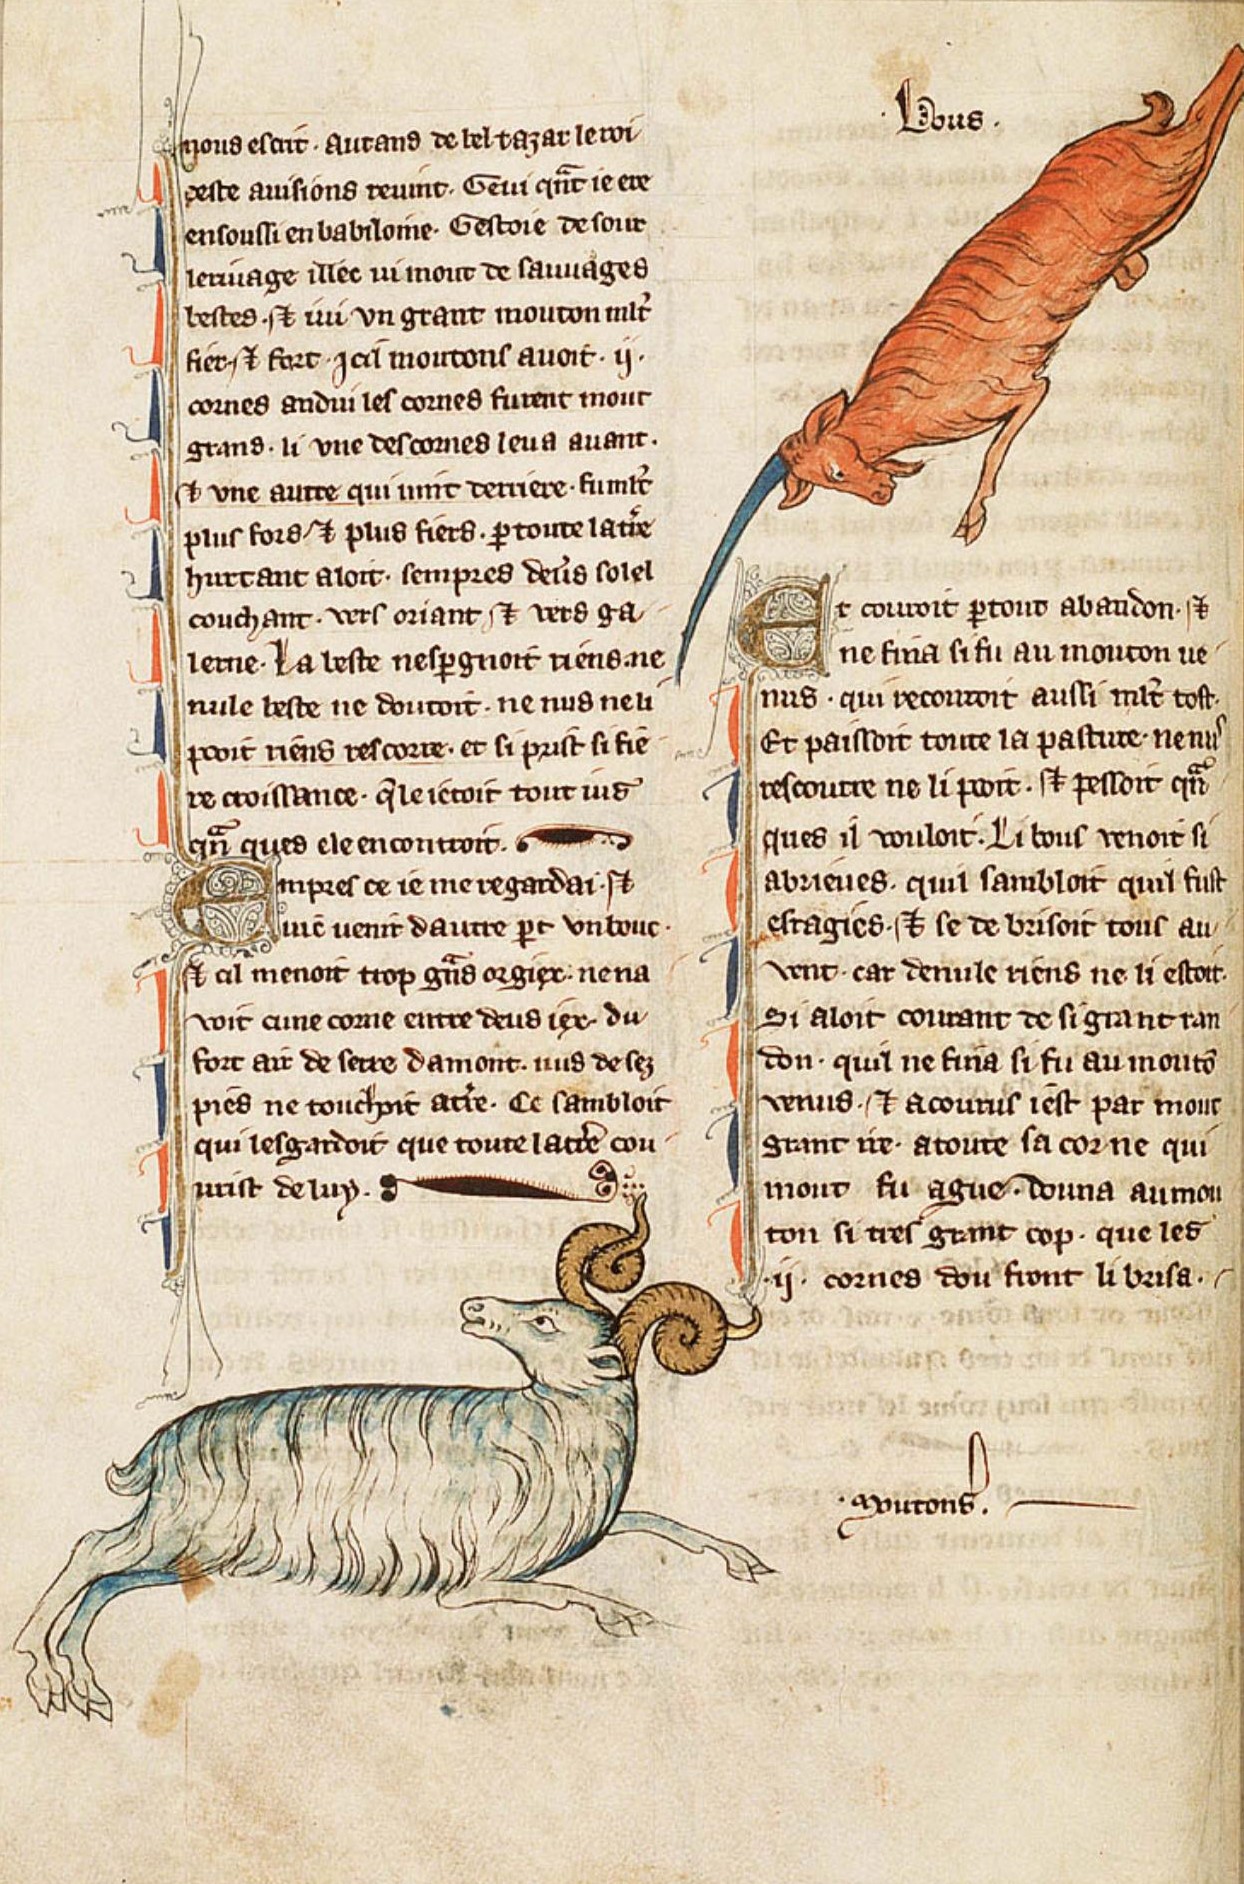 nous escrit · autans de beltazar le roi
ceste auisions reuint · Geui qñt ie ere
ensousli en babiloine · Gestoie de sour
leriuage illec ui mout de sauuages
bestes · ⁊ iui vn grant mouton mlt̃
fier · ⁊ fort · Icil moutons auoit · ij ·
cornes andui les cornes furent mout
grans · li vne des cornes leua auant ·
⁊ vne autre qui uint derriere · fu mlt̃
plus fors ⁊ plus fiers · ꝑ toute la tr̃e
hurtant aloit · sempres deu͛s solel
couchant · vers oriant ⁊ vers ga
lerne · La beste nesꝑgnoit riens · ne
nule beste ne doutoit · ne nus ne li
pooit riens rescorre · et si prist si fie
re croissance · q̃le ietoit tout ius
qñ ques ele encontroit ·
Empres ce ie me regardai · ⁊
uic̃ uenir dautre ꝑt vn bouc ·
⁊ cil menoit trop gñs orgiex · ne na
uoit cune corne entre deus iex · du
fort air de serre damont · nus de sez
pies ne touchoit a tr̃e · Ce sambloit
qui lesgardoit que toute la tr̃e cou
urist de luy ·
Bous ·
Et couroit ꝑ tout abandon · ⁊
ne fina si fu au mouton ue
nus · qui recouroit aussi mlt̃ tost ·
Et paissoit toute la pasture · ne nus
rescourre ne li pooit · ⁊ pessoit qñ
ques il vouloit · Li bous venoit si
abrieues · quil sambloit quil fust
esragies · ⁊ se de brisoit tous au
vent · car de nule riens ne li estoit ·
Si aloit courant de si grant ran
don · quil ne fina si fu au moutõ
venus · ⁊ acourus iest par mout
grant ire · a toute sa corne qui
mout fu ague · donna au mou
ton si tres grant cop · que les
· ij · cornes dou front li brisa ·
· Moutons ·